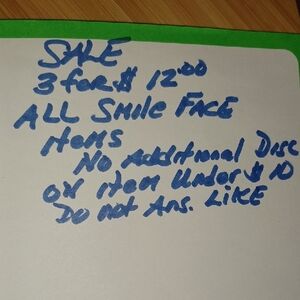 SALE
3 for $ 12.00
ALL Smile FACE
Items
No Additional Disc
on item Under $ 10
Do not Ans. LIKE